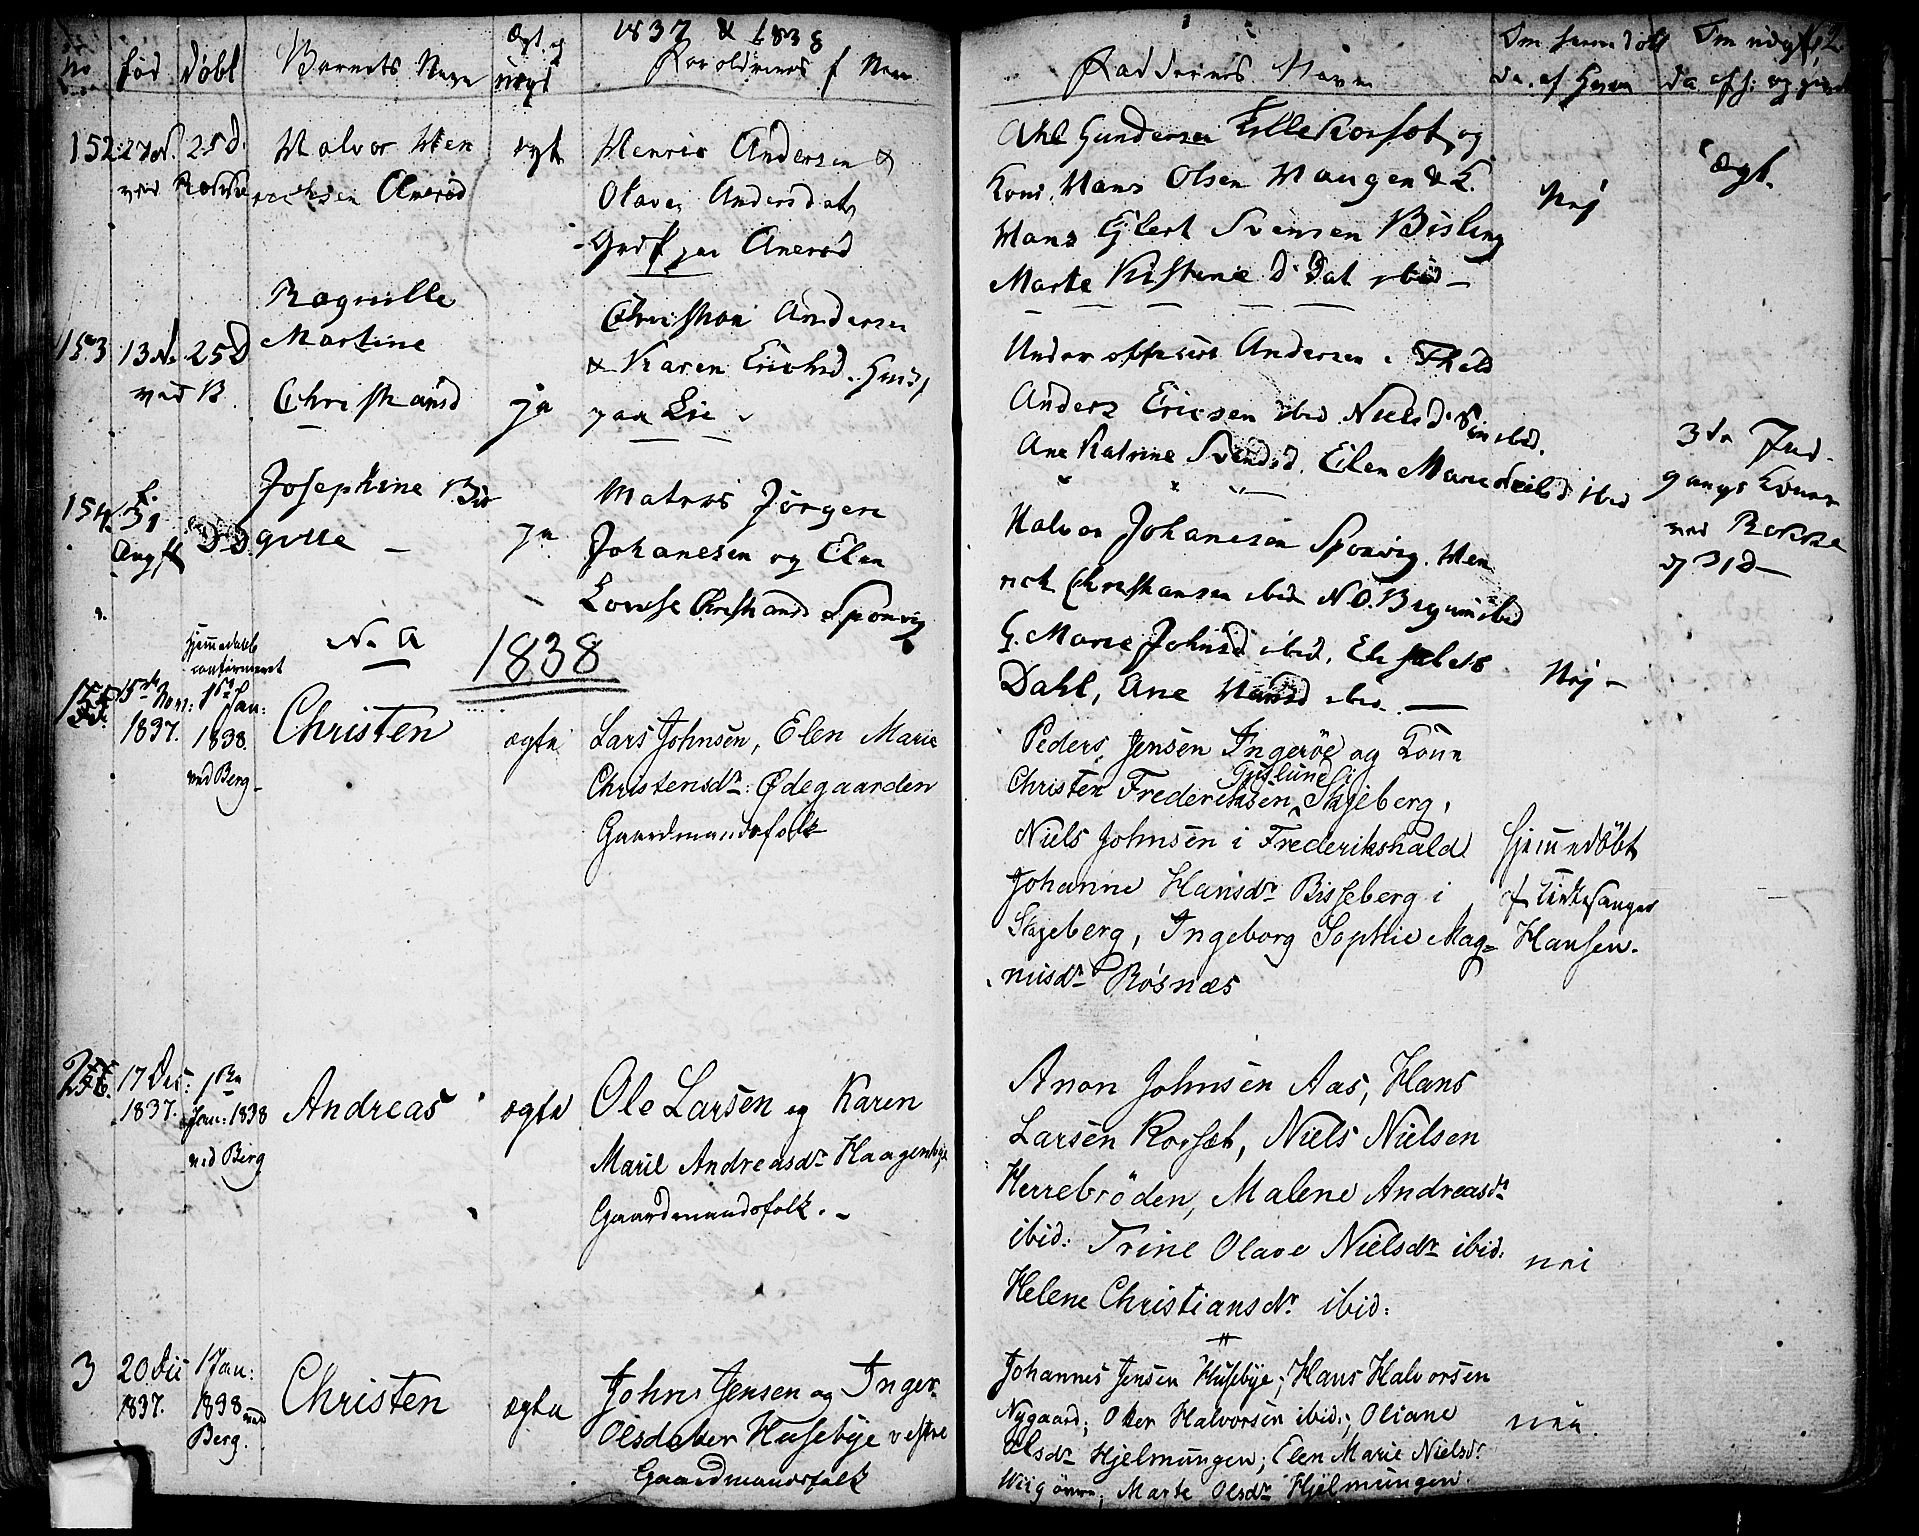 1837 & 1838
No
fød
døbt
Barnets Navn
Ægt og uægt
Foreldrenes f Navn
Faddernes Navn
Om hjemdøbt
da. af hvem
Om uægt
da
152
27 N.
25 D.
ved Rokke
Halvor Hen
richsen Anerød
egt
Henric Andersen &
Olava Andersdat
Grdf paa Anerød
Gundersen og
Kone, Hans Olsen Haugen & K.
Hans Ejlert Svensen Bisling
Marte Kistine D. Dat ibid —
Nej
Ægt.
153
13 N.
25 D
ved B.
Ragnille
Martine
Christiansd
ja
Christian Andersen
& Karen Erichsd.
paa Lie
Underofficier Andersen i Fhald
Anders Ericsen ibid Niels ibid.
Ane Katrine Svendsd. Elen Marie Neilsd ibid
154
31
Augst
Josephine Bir
gitte —
ja
Matros Jörgen
Johanesen og Elen
Lovise Christiansd Sponvig
Halvor Johanesen Sponvig. Hen
rich Christiansen ibid N. O. ibid
G. Marie Johnsd ibid, Elisabeth
Dahl, Ane Hansd ibid. —
Nej —
3 da Ind
gangs Kone
ved Rokke
d 31 D —
N. A
1838
Hjemmedøbt
confirmeret
15de Nov:
1837.
1ste Jan:
1838.
ved Berg —
Christen
ægte
Lars Johnsen, Elen Marie
Christensdr: Ødegaarden
Gaardmandsfolk
Peders Jensen Ingeröe og Kone
Christen Frederiksen Skjeberg,
Niels Johnsen i Frederikshald
Johanne Hansdr Bisseberg i
Skjeberg, Ingeborg Sophie Mag=
nusdr Rösnæs
Hjemmedöbt
af Kirkesanger
Hansen.
17 Dec:
1837.
1ste
Jan: 1838
ved Berg
Andreas
ægte
Ole Larsen og Karen
Marie Andreasdr Haagenbye
Gaardmandsfolk. —
Anon Johnsen Aas, Hans
Larsen Korsæt, Niels Nielsen
Herrebröden, Malene Andreasdr
ibid: Trine Olave Nielsdr ibid:
Helene Christiansdr ibid:
nei
3
20 Dec
1837.
1 Jan:
1838 ved
Berg.
Christen
ægte
Johns Jensen og Inger
Olsdatter Husebye vestre
Gaardmandsfolk
Johannes Jensen Husebye; Hans Halvorsen
Nygaard; Halvorsen ibid:; Oliane
Olsdr Hjelmungen; Elen Marie Nielsdr
Marte Olsdr Hjelmungen
nei.